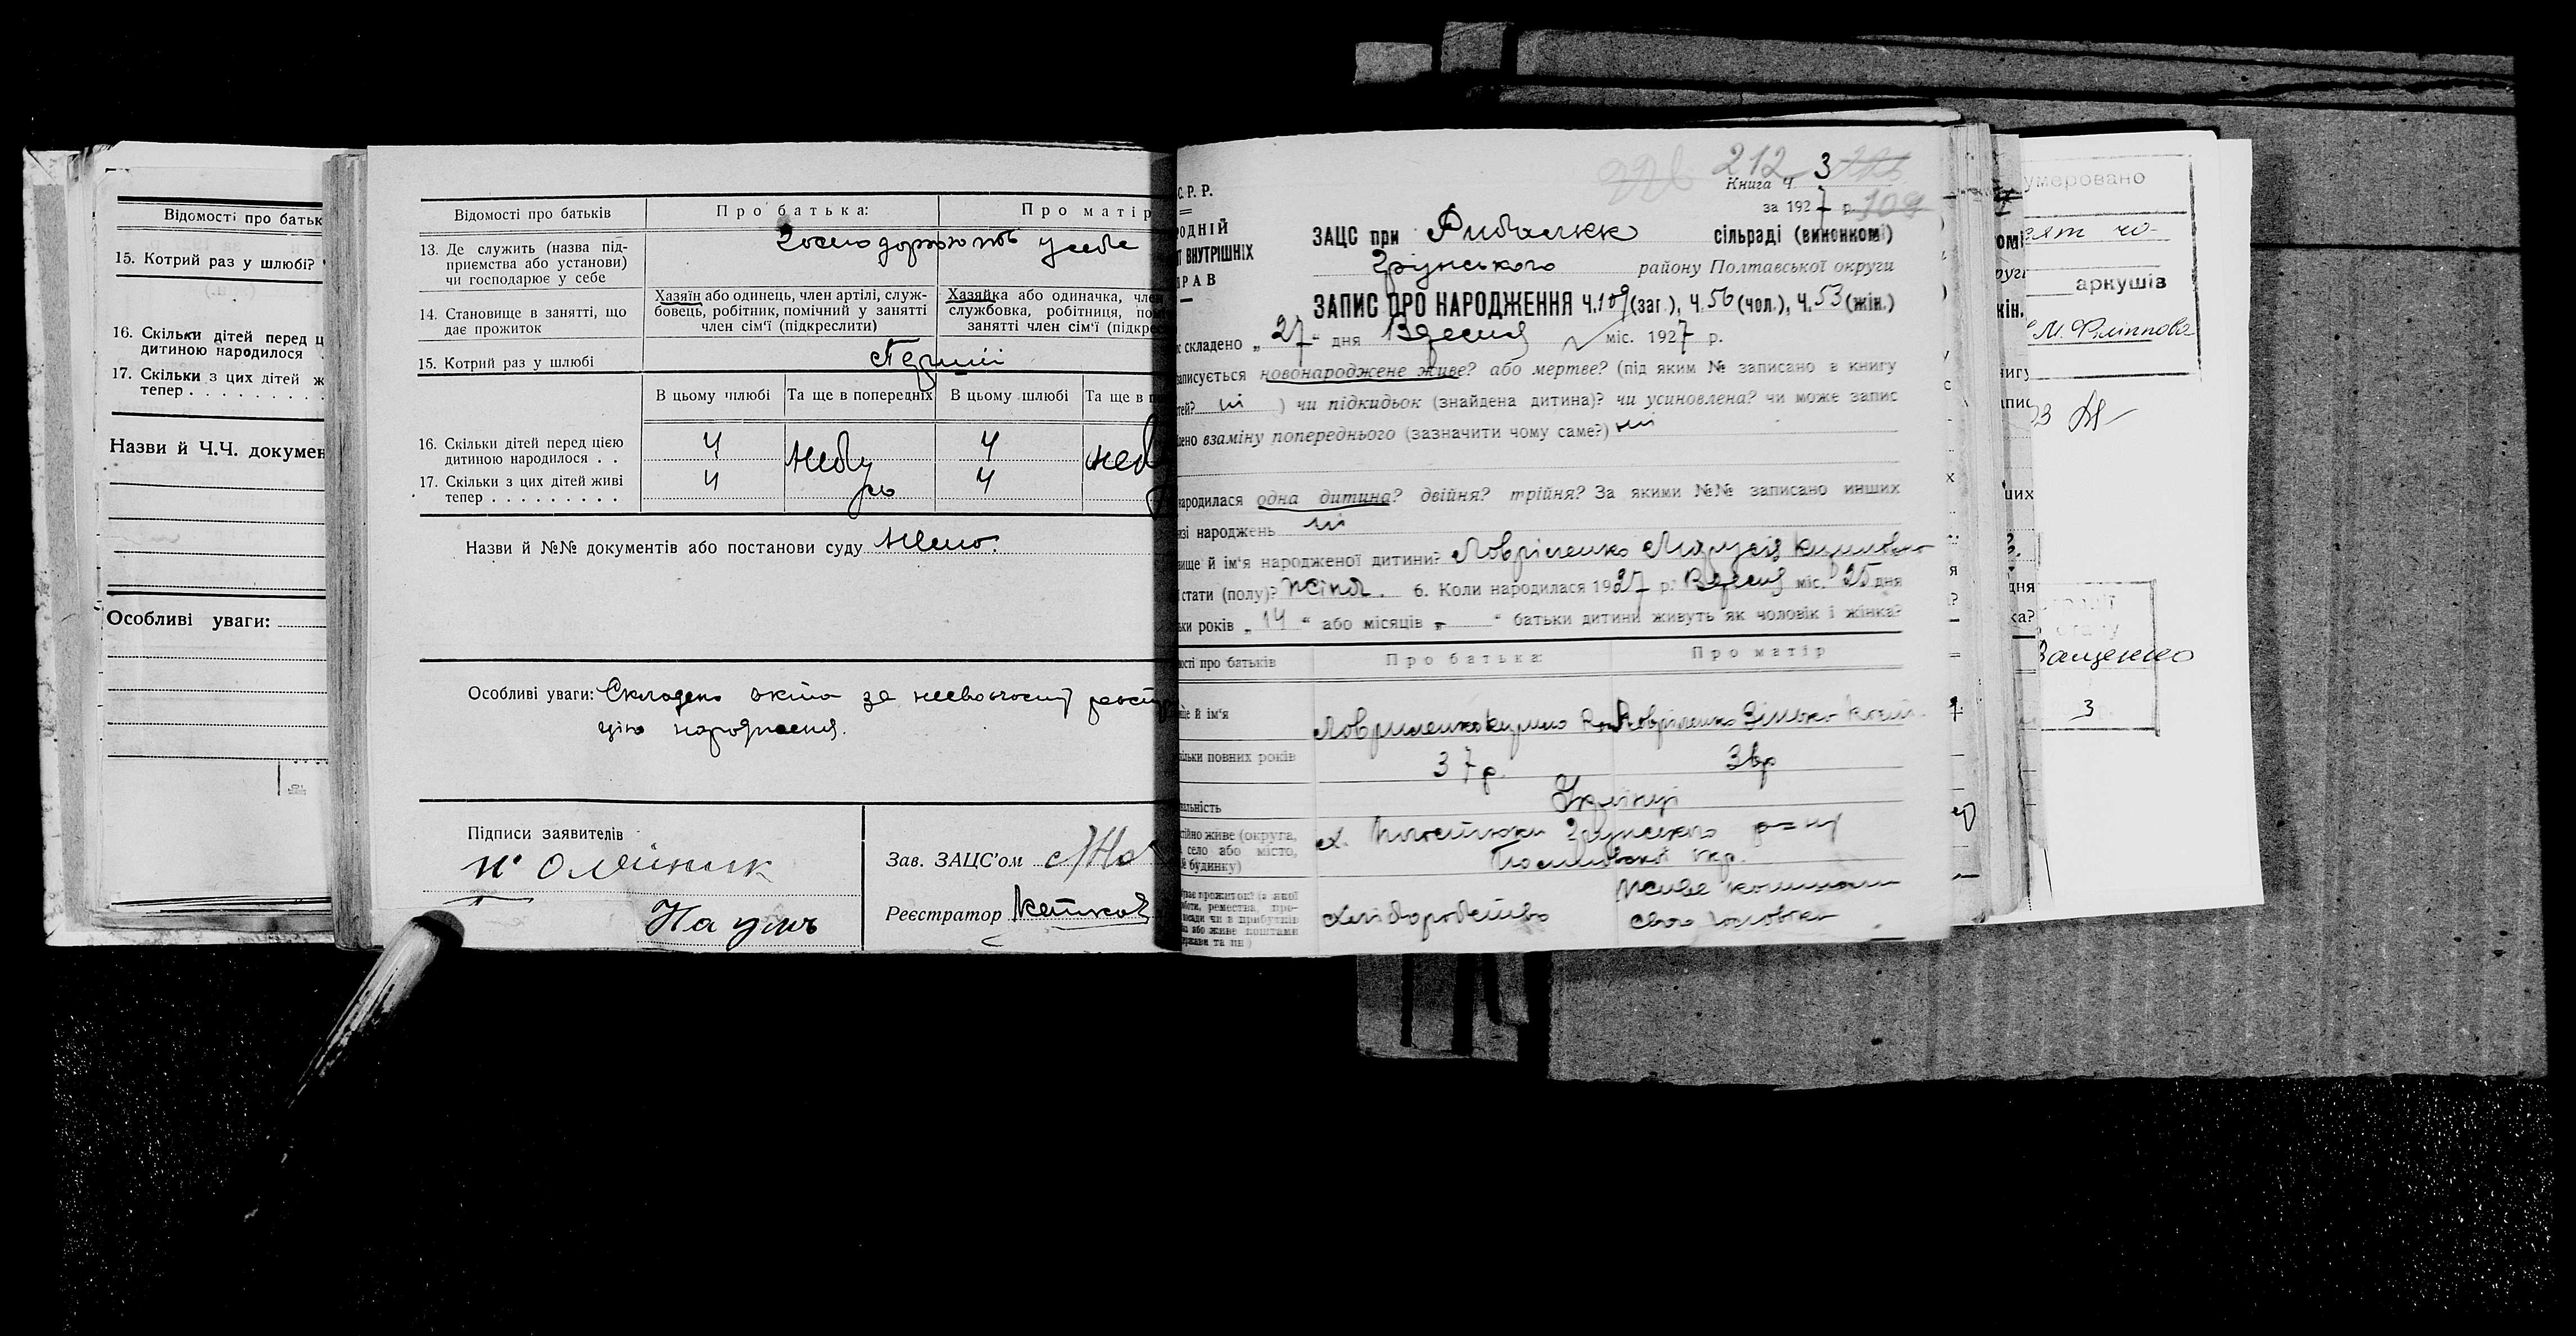 Відомості про батьк
15. Котрий раз у шлюбі?
16. Скільки дітей перед ц
дитиною народилося
17. Скільки з цих дітей ж
тепер . . . . . . . . .
Назви й Ч.Ч. докумен
Особливі уваги:
Відомості про батьків
Про батька:
Про матір
13. Де служить (назва під-
приємства або установи)
чи господарює у себе
Господарюють у себе
14. Становище в занятті, що
дає прожиток
Хазяїн або одинець, член артілі, служ-
бовець, робітник, помічний у занятті
член сім'ї (підкреслити)
Хазяйка або одиначка, член
службовка, робітниця, по
занятті член сім'ї (підкрес
15. Котрий раз у шлюбі
Перший
В цьому шлюбі
Та ще в попередніх
В цьому шлюбі
Та ще в п
16. Скільки дітей перед цією
дитиною народилося . .
4
4
Небу
17. Скільки з цих дітей живі
тепер . . . . . . . . .
4
4
ло
Назви й №№ документів або постанови суду Немає.
Особливі уваги: Складено акта за несвоєчасну реєстр
цію народження.
Підписи заявителів
Олейник
Наумъ
Зав. ЗАЦС'ом
Реєстратор
С. Р. Р.
ОДНІЙ
Т ВНУТРІШНІХ
РАВ
212
Книга Ч. 3
за 1927 р. 109
ЗАЦС при Рибальск сільраді (виконкомі)
Грунського району Полтавської округи
ЗАПИС ПРО НАРОДЖЕННЯ Ч. 109 (заг.), Ч. 56 (чол.), Ч. 53 (жін.)
складено „27“ дня Вересня міс. 1927 р.
записується новонароджене живе? або мертве? (під яким № записано в книгу
тей? ні ) чи підкидьок (знайдена дитина)? чи усиновлена? чи може запис
ено взаміну попереднього (зазначити чому саме?) ні
народилася одна дитина? двійня? трійня? За якими №№ записано инших
изі народжень ні
вище й ім'я народженої дитини? Лавріненко Маруся Кирилівна
стати (полу)? жіноч. 6. Коли народилася 1927 р. Вересня міс. 25 дня
ьки років „14“ або місяців „-“ батьки дитини живуть як чоловік і жінка?
ості про батьків
Про батька:
Про матір
ще й ім'я
Лавриненко Кирило
Лавріненко Зінька
ільки повних років
37 р.
36 р
альність
Українці
ійно живе (округа,
село або місто,
будинку)
х. Грунського р-ну
Полтавської окр.
Хліборобство
Живе коштами
свого чоловіка
умеровано
аркушів
М. Філіппова
Ващенко
3